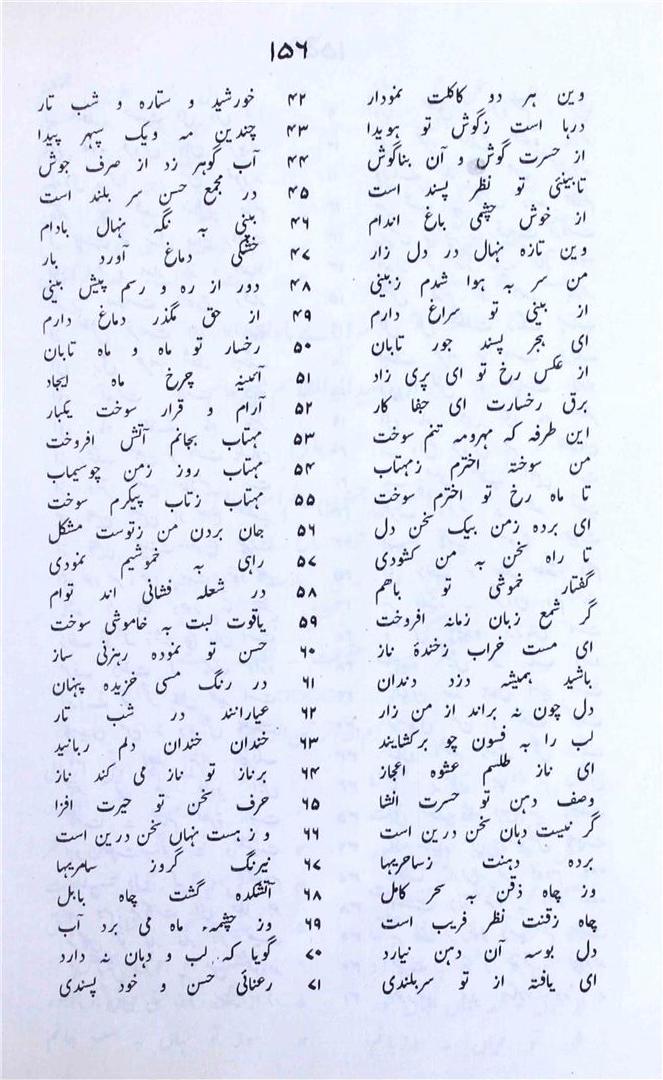 ۱۵۶
وین ہر دو کاکلت نمودار ۴۲ خورشید و ستارہ و شب تار
دریا است زگوش تو ہویدا ۴۳ چندین مہ ویک سپہر پیدا
از حسرت گوش و آن بناگوش ۴۴ آب گوہر زد از صرف جوش
تابینئی تو نظر پسند است ۴۵ در مجمع حسن سر بلند است
از خوش چشمی باغ اندام ۴۶ بینی بہ نگہ نہال بادام
وین تازہ نہال در دل زار ۴۷ خشکی دماغ آورد بار
من سر بہ ہوا شدم زبینی ۴۸ دور از رہ و رسم پیش بینی
از بینی تو سراغ دارم ۴۹ از حق مگذر دماغ دارم
ای بجر پسند جور تابان ۵۰ رخسار تو ماہ و ماہ تابان
از عکس رخ تو ای پری زاد ۵۱ آئینہ چرخ ماہ ایجاد
برق رخسارت ای جفا کار ۵۲ آرام و قرار سوخت یکبار
این طرفہ کہ مہرومہ تنم سوخت ۵۳ مہتاب بجانم آتش افروخت
من سوختہ اخترم زمہتاب ۵۴ مہتاب روز زمن چوسیماب
تا ماہ رخ تو اخترم سوخت ۵۵ مہتاب زتاب پیکرم سوخت
ای بردہ زمن بیک سخن دل ۵۶ جان بردن من زتوست مشکل
تا راہ سخن بہ من کشودی ۵۷ راہی بہ خموشیم نمودی
گفتار خموشی تو باہم ۵۸ در شعلہ فشانی اند توام
گر شمع زبان زمانہ افروخت ۵۹ یاقوت لبت بہ خاموشی سوخت
ای مست خراب زخندۂ ناز ۶۰ حسن تو نمودہ رہزنی ساز
باشید ہمیشہ دزد دندان ۶۱ در رنگ مسی خزیدہ پنہان
دل چون نہ براند از من زار ۶۲ عیارانند در شب تار
لب را بہ فسون چو برکشایند ۶۳ خندان خندان دلم ربایند
ای ناز طلسم عشوہ اعجاز ۶۴ برناز تو ناز می کند ناز
وصف دہن تو حسرت انشا ۶۵ حرف سخن تو حیرت افزا
گر نیست دہان سخن درین است ۶۶ و ز ہست نہاں سخن درین است
بردہ دہنت زساحریہا ۶۷ نیرنگ گروز سامریہا
وز چاہ ذقن بہ سحر کامل ۶۸ آتشکدہ گشت چاہ بابل
چاہ زقنت نظر فریب است ۶۹ وز چشمہء ماہ می برد آب
دل بوسہ آن دہن نیارد ۷۰ گویا کہ لب و دہان نہ دارد
ای یافتہ از تو سربلندی ۷۱ رعنائی حسن و خود پسندی